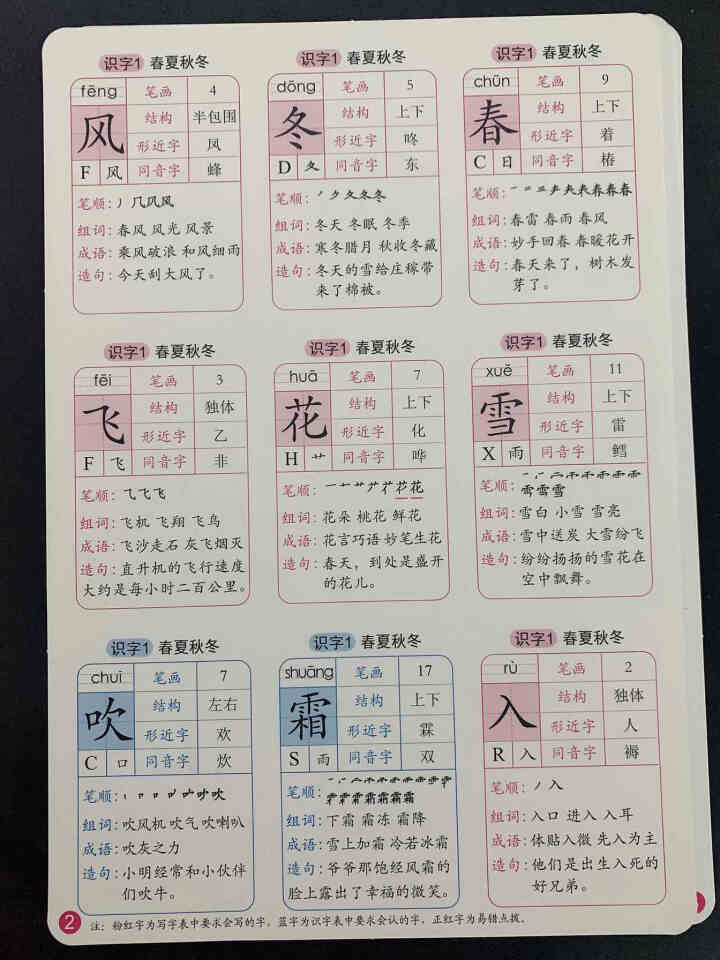 识字1 春夏秋冬
fēng 笔画 4
风 结构 半包围
形近字 凤
F 风 同音字 蜂
笔顺：丿几凡风
组词：春风 风光 风景
成语：乘风破浪 和风细雨
造句：今天刮大风了。
识字1 春夏秋冬
dōng 笔画 5
冬 结构 上下
形近字 咚
D 夂 同音字 东
笔顺：
组词：冬天 冬眠 冬季
成语：寒冬腊月 秋收冬藏
造句：冬天的雪给庄稼带
来了棉被。
识字1 春夏秋冬
chūn 笔画 9
春 结构 上下
形近字 着
C 日 同音字 椿
笔顺：
组词：春雷 春雨 春风
成语：妙手回春 春暖花开
造句：春天来了，树木发
芽了。
识字1 春夏秋冬
fēi 笔画 3
飞 结构 独体
形近字 乙
F 飞 同音字 非
笔顺：乁飞飞
组词：飞机 飞翔 飞鸟
成语：飞沙走石 灰飞烟灭
造句：直升机的飞行速度
大约是每小时二百公里。
识字1 春夏秋冬
huā 笔画 7
花 结构 上下
形近字 化
H 艹 同音字 哗
笔顺：
组词：花朵 桃花 鲜花
成语：花言巧语 妙笔生花
造句：春天，到处是盛开
的花儿。
识字1 春夏秋冬
xuě 笔画 11
雪 结构 上下
形近字 雷
X 雨 同音字 鳕
笔顺：
组词：雪白 小雪 雪亮
成语：雪中送炭 大雪纷飞
造句：纷纷扬扬的雪花在
空中飘舞。
识字1 春夏秋冬
chuī 笔画 7
吹 结构 左右
形近字 欢
C 口 同音字 炊
笔顺：
组词：吹风机 吹气 吹喇叭
成语：吹灰之力
造句：小明经常和小伙伴
们吹牛。
识字1 春夏秋冬
shuāng 笔画 17
霜 结构 上下
形近字 霖
S 雨 同音字 双
笔顺：
组词：下霜 霜冻 霜降
成语：雪上加霜 冷若冰霜
造句：爷爷那饱经风霜的
脸上露出了幸福的微笑。
识字1 春夏秋冬
rù 笔画 2
入 结构 独体
形近字 人
R 入 同音字 褥
笔顺：丿入
组词：入口 进入 入耳
成语：体贴入微 先入为主
造句：他们是出生入死的
好兄弟。
2 注：粉红字为写字表中要求会写的字，蓝字为识字表中要求会认的字，正红字为易错点拨。